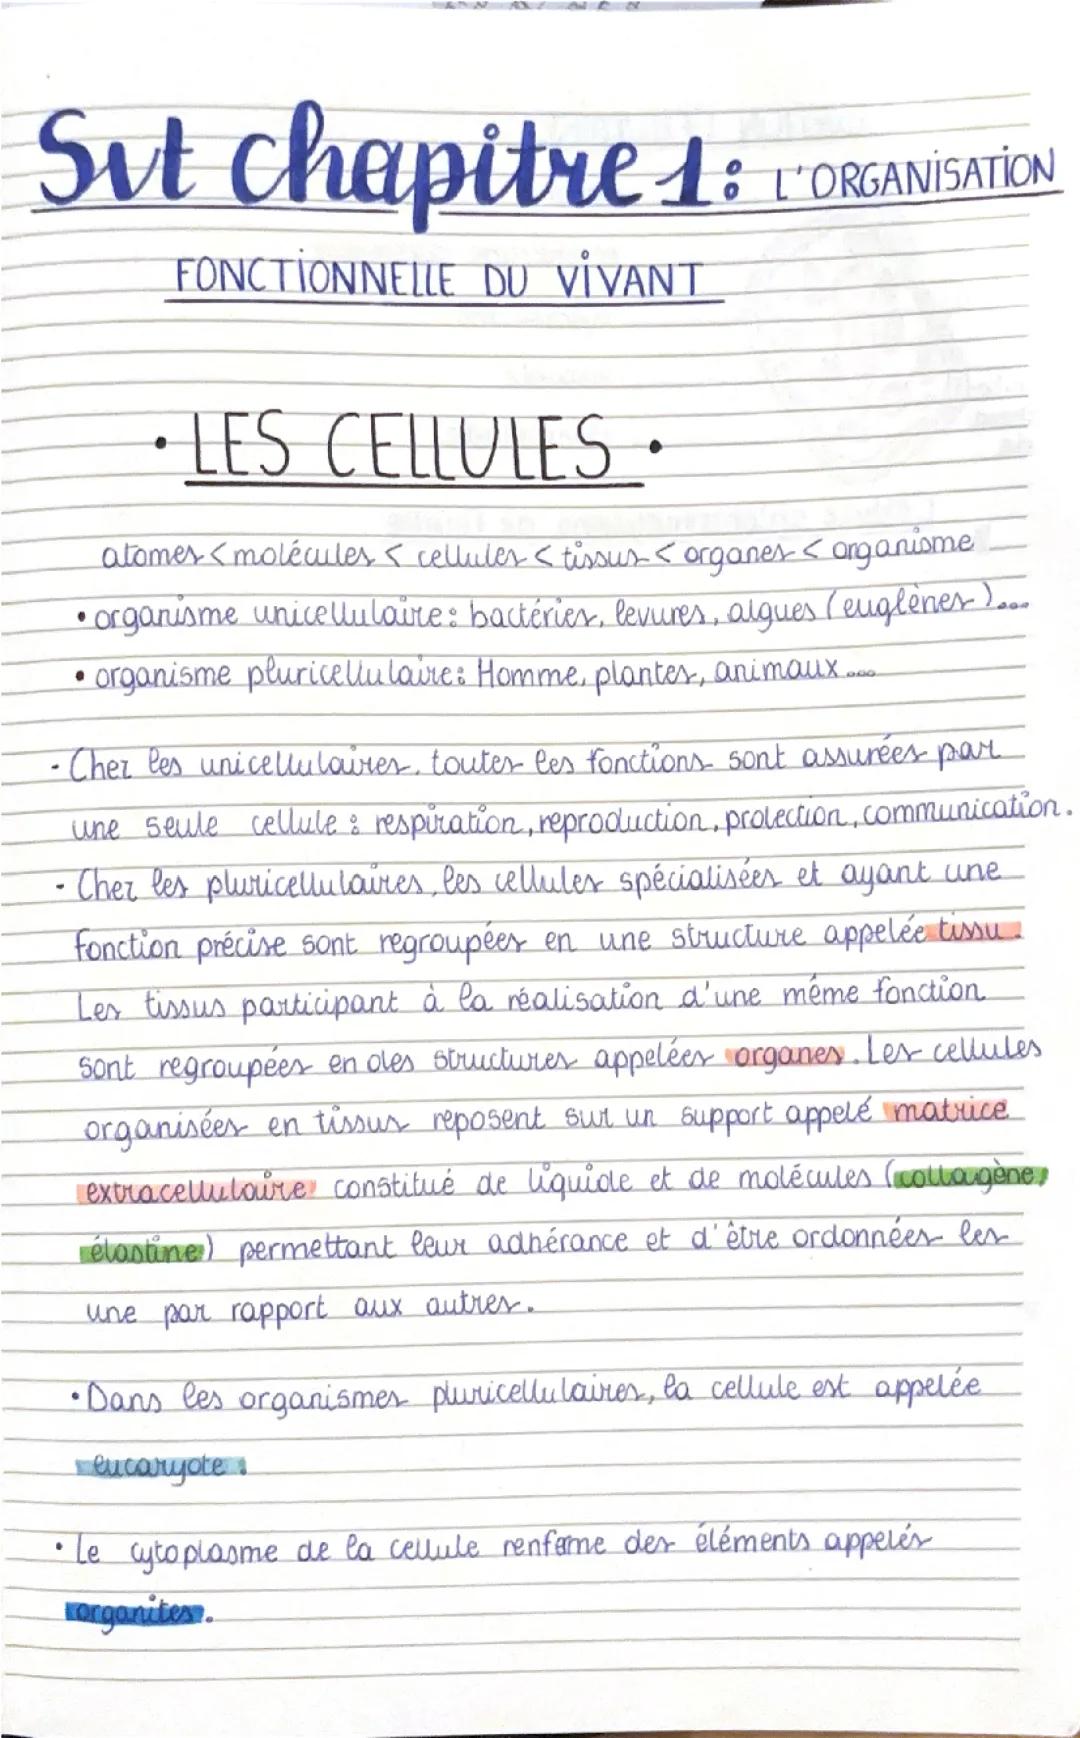 Svt chapitre 1: L'ORGANISATION
FONCTIONNELLE DU VIVANT
• LES CELLULES •
atomes < molécules < cellules < tissus < organes < organisme
• organisme unicellulaire: bactéries, levures, algues (euglènes)...
• organisme pluricellulaire: Homme, plantes, animaux....
- Chez les unicellulaires, toutes les fonctions sont assurées par
une seule cellule : respiration, reproduction, protection, communication.
- Chez les pluricellulaires, les cellules spécialisées et ayant une
fonction précise sont regroupées en une structure appelée tissu.
Les tissus participant à la réalisation d'une même fonction
sont regroupées en des structures appelées organes. Les cellules
organisées en tissus reposent sur un support appelé matrice
extracellulaire constitué de liquide et de molécules (collagène,
élastine) permettant leur adhérance et d'être ordonnées les
une par rapport aux autres.
• Dans les organismes pluricellulaires, la cellule est appelée
eucaryote.
• Le cytoplasme de la cellule renferme des éléments appelés
organites.